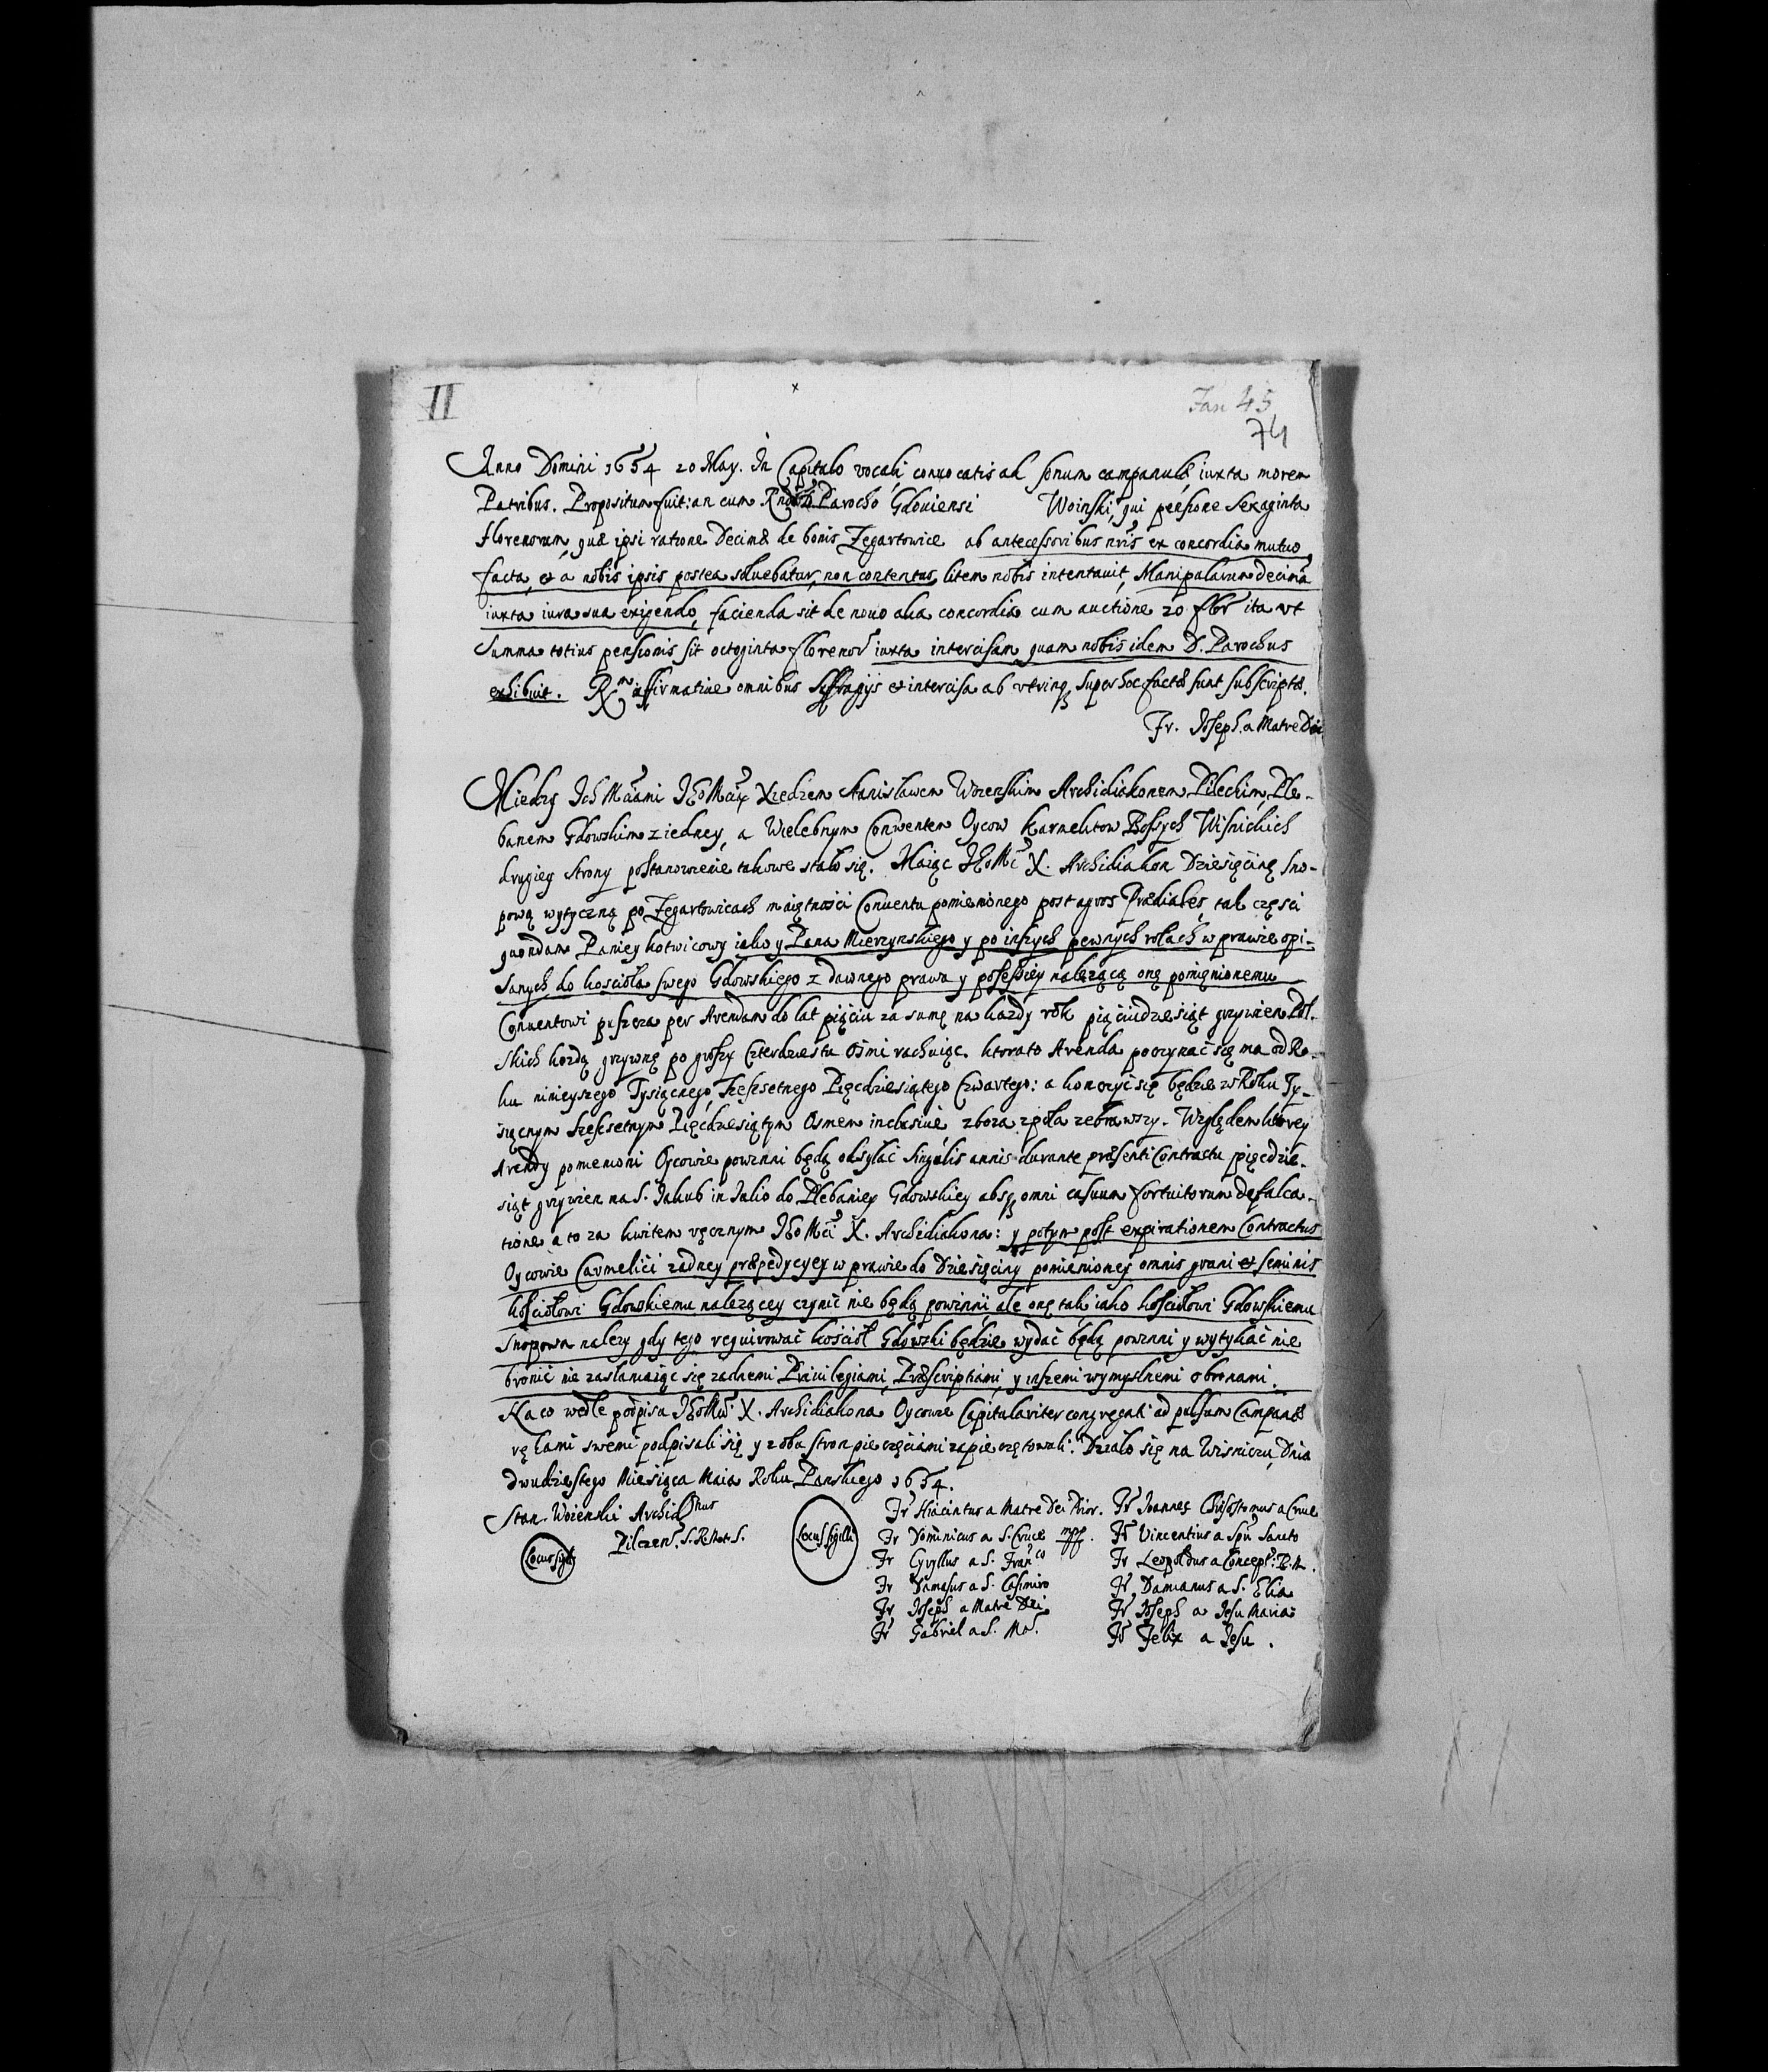 II
Fan 45
74
Anno Domini 1654 20 May. In Capitulo vocali, conuocatis ad sonum campanulæ, iuxta morem
Patribus. Propositum fuit: an cum Rndo D. Parocho Gdouiensi Woinski, qui pensione sexaginta
florenorum, quæ ipsi ratione Decimæ de bonis Zegartowice ab antecessoribus nris ex concordia mutuo
facta, et a nobis ipsis postea soluebatur, non contentus, litem nobis intentauit, Manipularem decimā
iuxta iura sua exigendo, facienda sit de nouo alia concordia cum auctione 20 flor ita vt
Summa totius pensionis sit octoginta florenor iuxta intercisam quam nobis idem D. Parochus
exhibuit. Rm affirmatiue omnibus suffragijs et intercisa ab vtrinq super hoc factæ sunt subscriptæ.
Fr. Joseph a Matre Dei
Miedzy Ich Mciami Jego Mcią Xiedzem Stanisławem Wozenskim Archidiakonem Pileckim, Ple-
banem Gdowskim z iedney, a Wielebnym Conwentem Oycow Karmelitow Bossych Wisnickich
drugiey strony postanowienie takowe stało się. Maiąc JegoMć X. Archidiakon Dziesięcinę sno-
pową wytyczną po Zegartowicach maiętnosci Conuentu pomienionego post agros Prædiales, tak częsci
quondam Paniey Kotwicowy iako y Pana Mierzynskiego y po inszych pewnych rolach w prawie opi-
sanych, do kosciola swego Gdowskiego z dawnego prawa y possessiey nalezącą onę pomienionemu
Conuentowi puszcza per Arendam do lat pięciu za sumę na kazdy rok pięćiudziesiąt grzywien Pol-
skich kozdą grzywnę po groszy czterdziestu osmi rachuiąc. ktorato Arenda poczynać się ma od Ro-
ku ninieyszego Tysiącnego, Szescsetnego Pięcdziesiątego Czwartego: a konczyć się będzie w Roku Ty-
siącnym Szescsetnym Pięcdziesiątym Osmem inclusiue zboza z pola zebrawszy. Względem ktorey
Arendy pomienieni Oycowie powinni będą odsyłać singulis annis durante præsenti Contractu pięcdzie-
siąt grzywien na S. Jakub in Julio do Plebaniey Gdowskiey absq omni casuum fortuitorum defalca-
tione, a to za kwitem ręcznym JegoMci X. Archidiakona: y potym post expirationem Contractus
Oycowie Carmelici zadney præpedycyey w prawie do Dziesięciny pomienioney omnis grani et seminis
kościołowi Gdowskiemu nalezącey czynić nie będą powinni, ale onę tak iako kościołowi Gdowskiemu
Snopowa nalezy gdy tego requirować kościół Gdowski będzie wydać będą powinni y wytykać nie
bronić nie zasłaniaiąc się zadnemi Priuilegiami, Præscriptiami, y inszemi wymyslnemi obronami.
Na co wedle podpisu JegoMci X. Archidiakona Oycowie Capitulariter congregati ad pulsum Campanæ
rękami swemi podpisali się y z obu stron pieczęćiami zapieczętowali. Działo się na Wisniczu, Dnia
dwudziestego Miesiąca Maia Roku Panskiego 1654.
Stan. Wozenski Archidnus
Pilczens. S.R.Mat.S.
Locus sigilli
Locus sigilli
Fr Hiacintus a Matre Dei Prior.
Fr Dominicus a S. Cruce mpp.
Fr Cyryllus a S. Franco
Fr Damasus a S. Casimiro
Fr Joseph a Matre Dei
Fr Gabriel a S. Ma.
Fr Joannes Chrisostomus a Cruce
Fr Vincentius a Spu Sancto
Fr Leopoldus a Concept: B.M.
Fr Damianus a S. Elia
Fr Joseph a Jesu Maria
Fr Felix a Jesu.